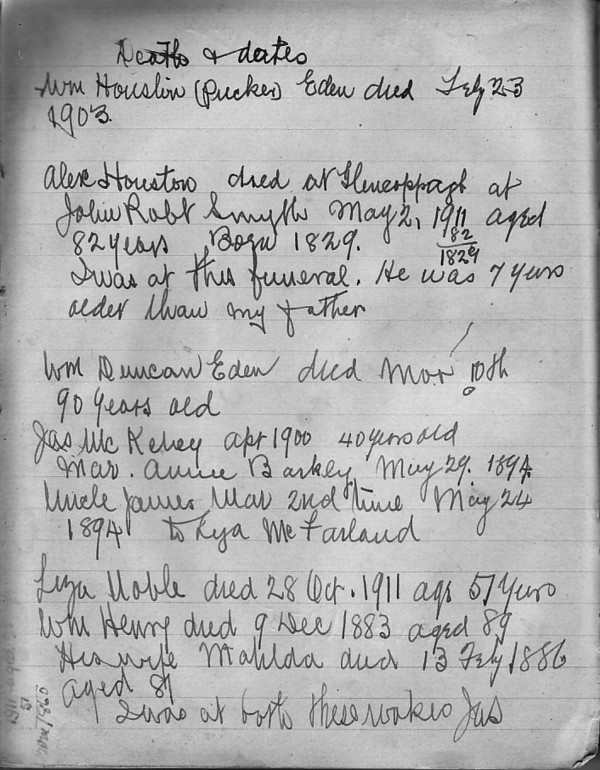 Deaths & dates
Wm Houston (Pucker) Eden died Feby 23
1903.
Alex Houston died at at
John Robt Smyth May 2, 1911 aged
82 years Born 1829. 82
1829
I was at this funeral. He was 7 years
older than my father
Wm Duncan Eden died Mar 10th
90 years old
Jas Mc Kelvey apr 1900 40 years old
Mar. Annie Barkley May 29. 1894
Uncle James Mar 2nd time May 24
1894 to Lyza McFarland
Liza Noble died 28 Oct. 1911 age 57 years
Wm Henry died 9 Dec 1883 aged 89
His wife Matilda died 13 Feby 1886
aged 81
I was at both these wakes Jas